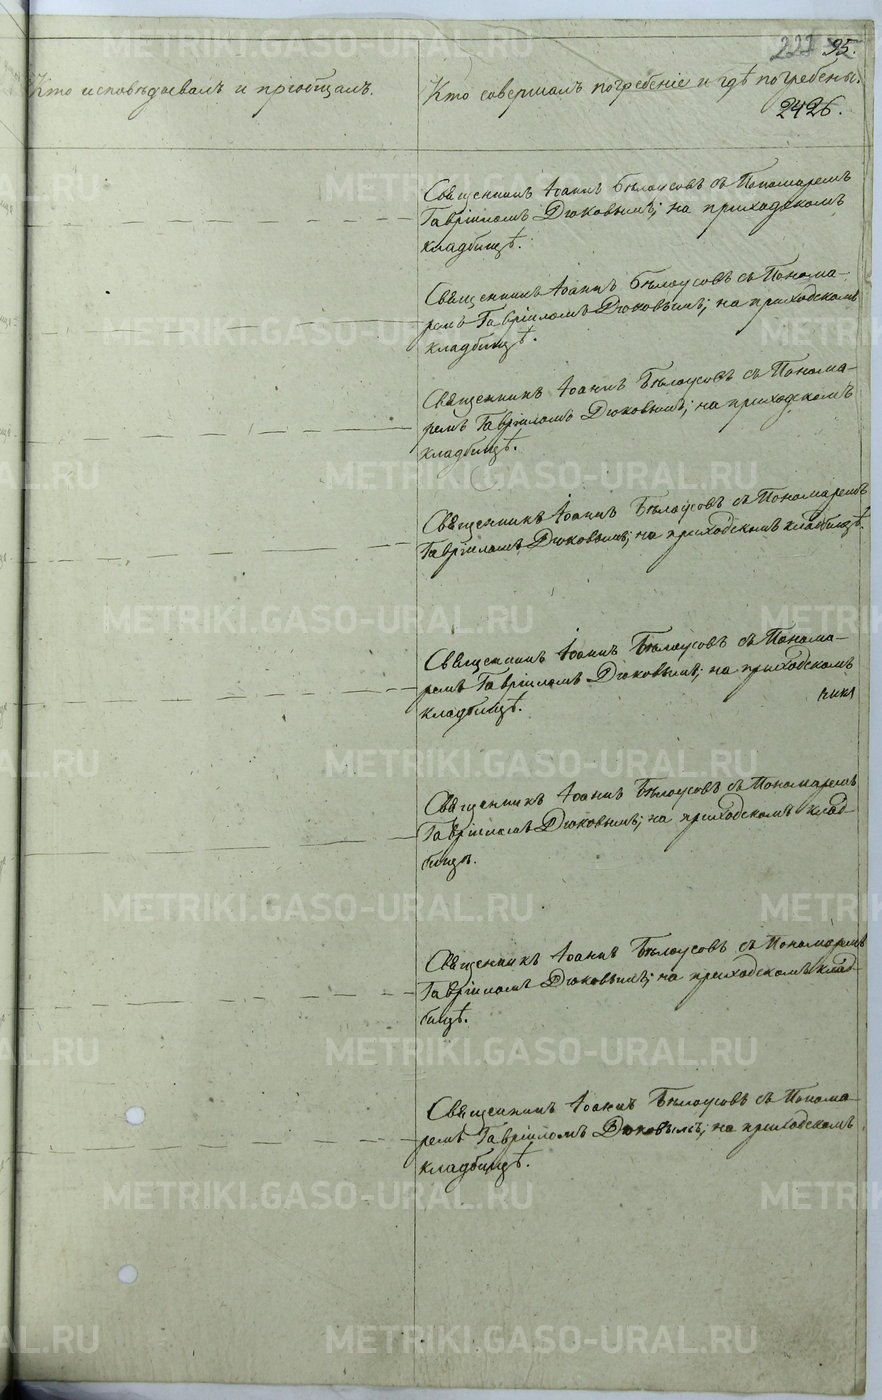 95.
Кто исповѣдовалъ и пріобщалъ.
Кто совершалъ погребеніе и гдѣ погребены.
2426.
Священникъ Іоаннъ Бѣлоусовъ съ Пономаремъ
Гавріиломъ Дюковымъ; на приходскомъ
кладбищѣ.
Священникъ Іоаннъ Бѣлоусовъ съ Понома-
ремъ Гавріиломъ Дюковымъ; на приходскомъ
кладбищѣ.
Священникъ Іоаннъ Бѣлоусовъ съ Понома-
ремъ Гавріиломъ Дюковымъ; на приходскомъ
кладбищѣ.
Священникъ Іоаннъ Бѣлоусовъ съ Пономаремъ
Гавріиломъ Дюковымъ; на приходскомъ кладбищѣ.
Священникъ Іоаннъ Бѣлоусовъ съ Понома-
ремъ Гавріиломъ Дюковымъ; на приходскомъ
кладбищѣ.
Священникъ Іоаннъ Бѣлоусовъ съ Пономаремъ
Гавріиломъ Дюковымъ; на приходскомъ клад-
бищѣ.
Священникъ Іоаннъ Бѣлоусовъ съ Пономаремъ
Гавріиломъ Дюковымъ; на приходскомъ клад-
бищѣ.
Священникъ Іоаннъ Бѣлоусовъ съ Понома-
ремъ Гавріиломъ Дюковымъ; на приходскомъ
кладбищѣ.
METRIKI.GASO-URAL.RU